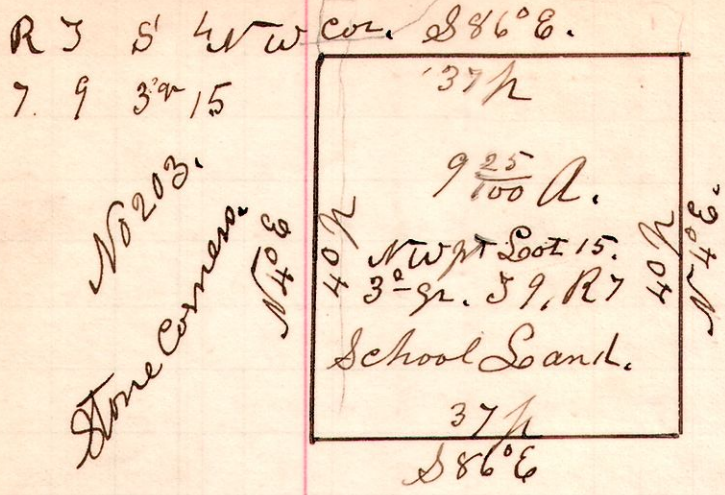 R T S L NW cor. S86°E.
7. 9 3ᵈqr 15
37p
No 203.
Stone Corners.
N4°E
40p
9 25/100 A.
NW pt Loot 15.
3ᵈ qr. T9, R7
School Land.
40p
N4°E.
37p
S86°E